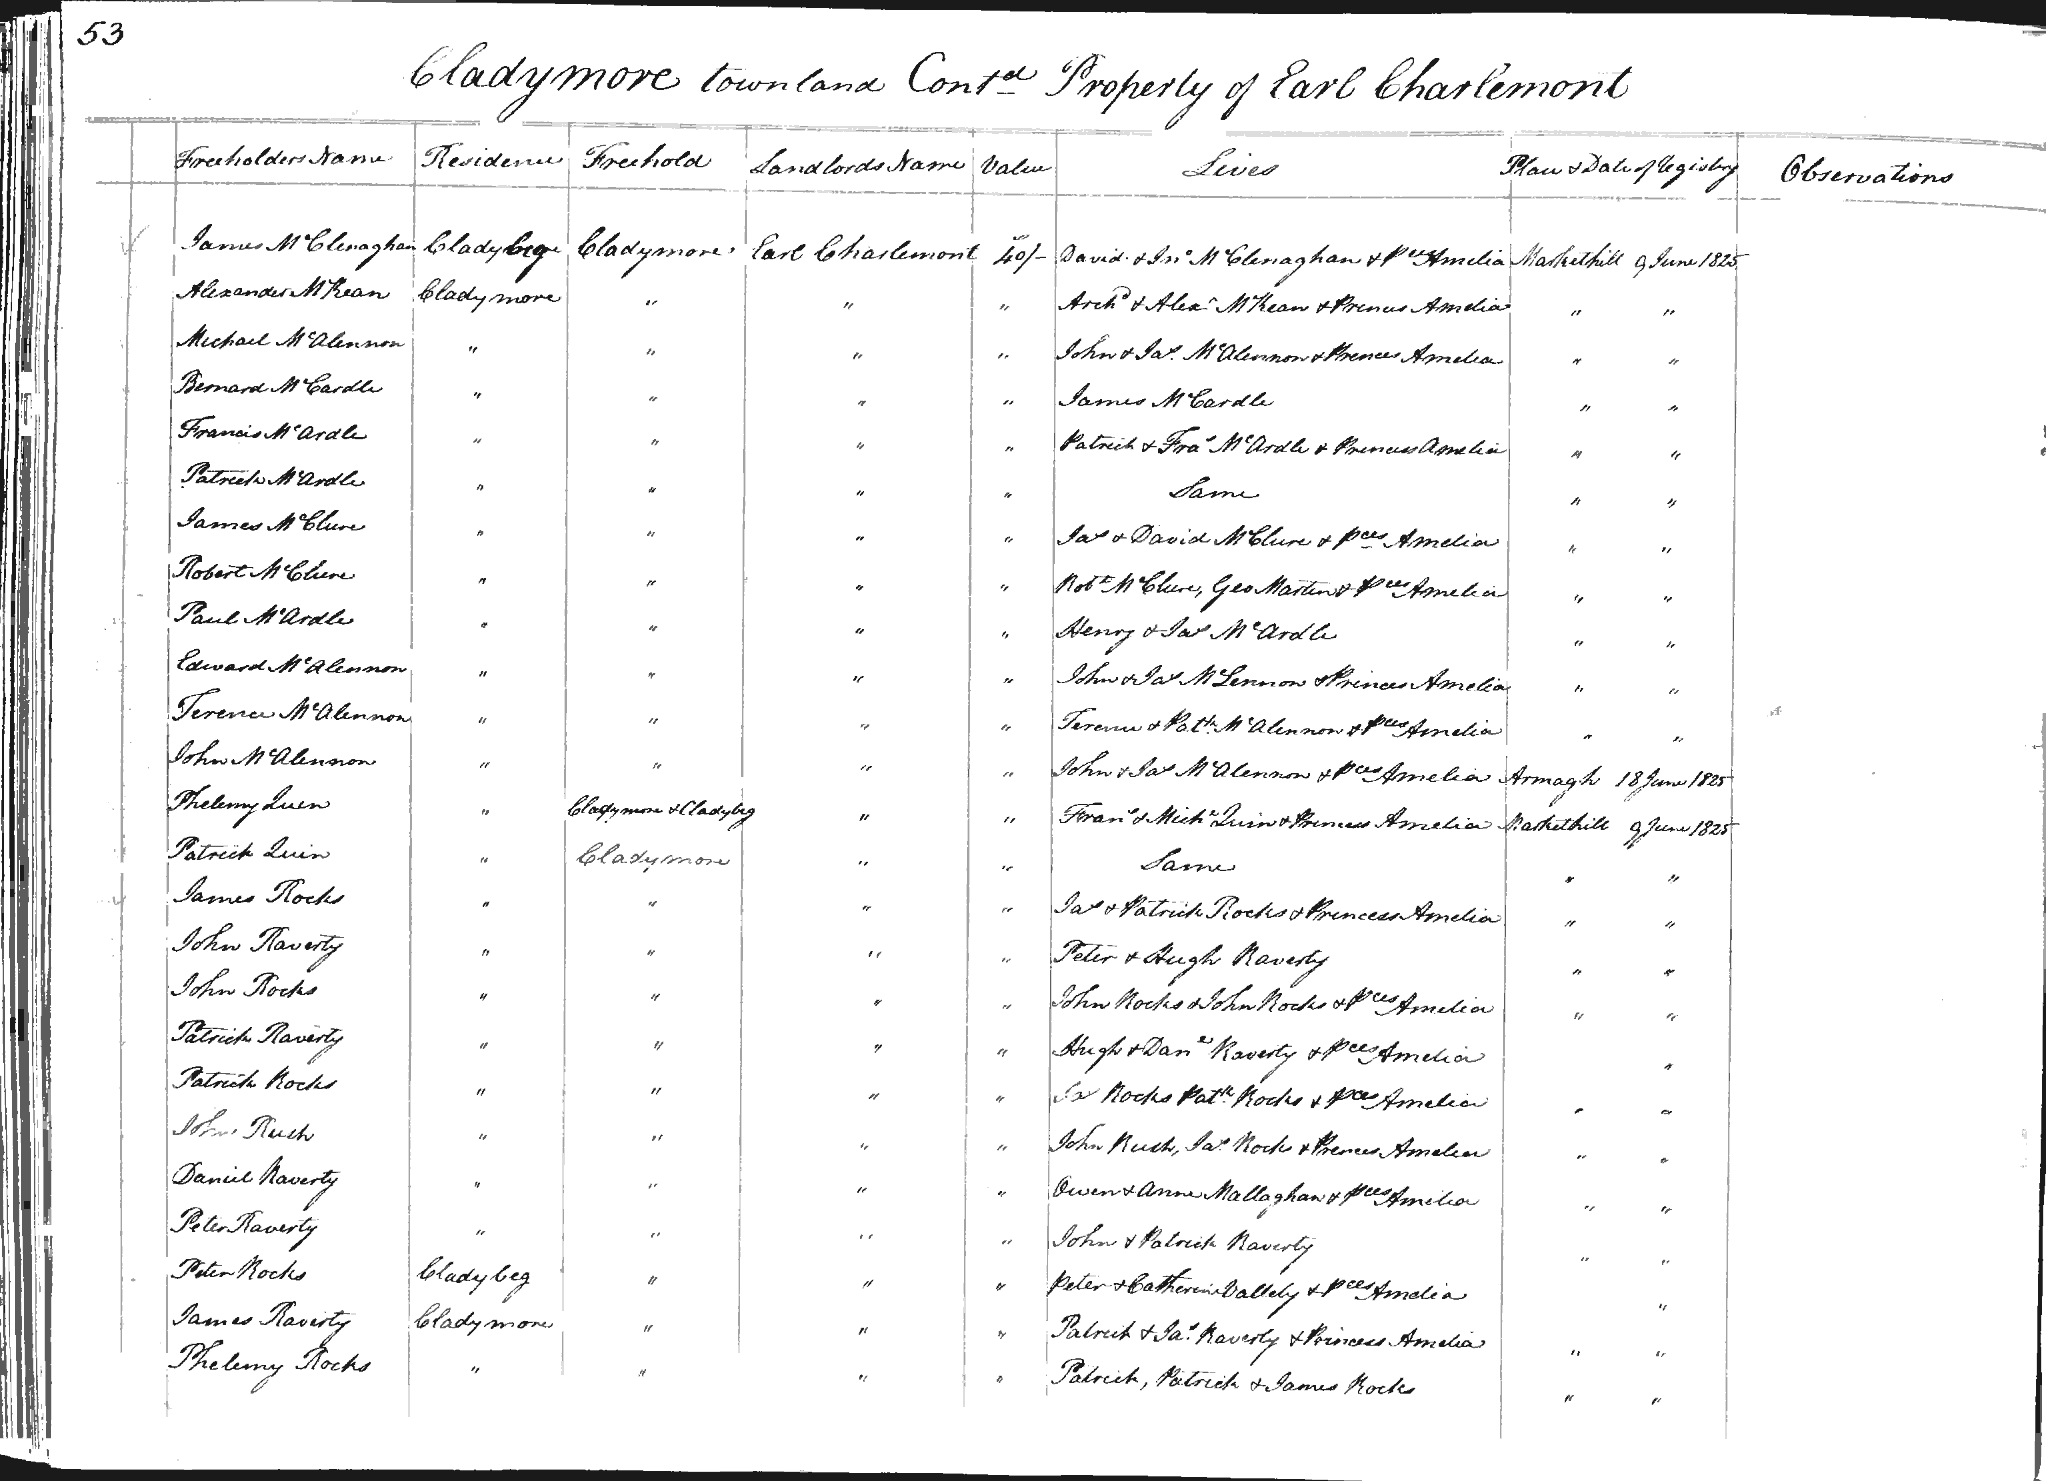 53
Cladymore townland Contd Property of Earl Charlemont
Freeholders Name Residence Freehold Landlords Name Value Lives Place & Date of Registry Observations
James McClenaghan Cladybeg Cladymore Earl Charlemont 40/- David & Jno McClenaghan & Pss Amelia Markethill 9 June 1825
Alexander McKean Cladymore " " " Archd & Alexr McKean & Princess Amelia " "
Michael McAlennon " " " " John & Jas McAlennon & Princess Amelia " "
Bernard McCardle " " " " James McCardle " "
Francis McArdle " " " " Patrick & Fras McArdle & Princess Amelia " "
Patrick McArdle " " " " Same " "
James McClure " " " " Jas & David McClure & Pces Amelia " "
Robert McClure " " " " Robt McClure, Geo Martin & Pces Amelia " "
Paul McArdle " " " " Henry & Jas McArdle " "
Edward McAlennon " " " " John & Jas McLennon & Princes Amelia " "
Terence McAlennon " " " " Terence & Patk McAlennon & Pces Amelia " "
John McAlennon " " " " John & Jas McAlennon & Pces Amelia Armagh 18 June 1825
Phelemy Quin " Cladymore & Cladybeg " " Frans & Michl Quin & Princess Amelia Markethill 9 June 1825
Patrick Quin " Cladymore " " Same " "
James Rocks " " " " Jas & Patrick Rocks & Princess Amelia " "
John Raverty " " " " Peter & Hugh Raverty " "
John Rocks " " " " John Rocks & John Rocks & Pces Amelia " "
Patrick Raverty " " " " Hugh & Danl Raverty & Pces Amelia "
Patrick Rocks " " " " Jas Rocks Patk Rocks & Pces Amelia " "
John Rush " " " " John Rush, Jas Rocks & Princes Amelia " "
Daniel Raverty " " " " Owen & Anne Mallaghan & Pces Amelia " "
Peter Raverty " " " " John & Patrick Raverty " "
Peter Rocks Cladybeg " " " Peter & Catherine Vallely & Pces Amelia "
James Raverty Cladymore " " " Patrick & Jas Raverty & Princess Amelia " "
Phelemy Rocks " " " " Patrick, Patrick & James Rocks " "